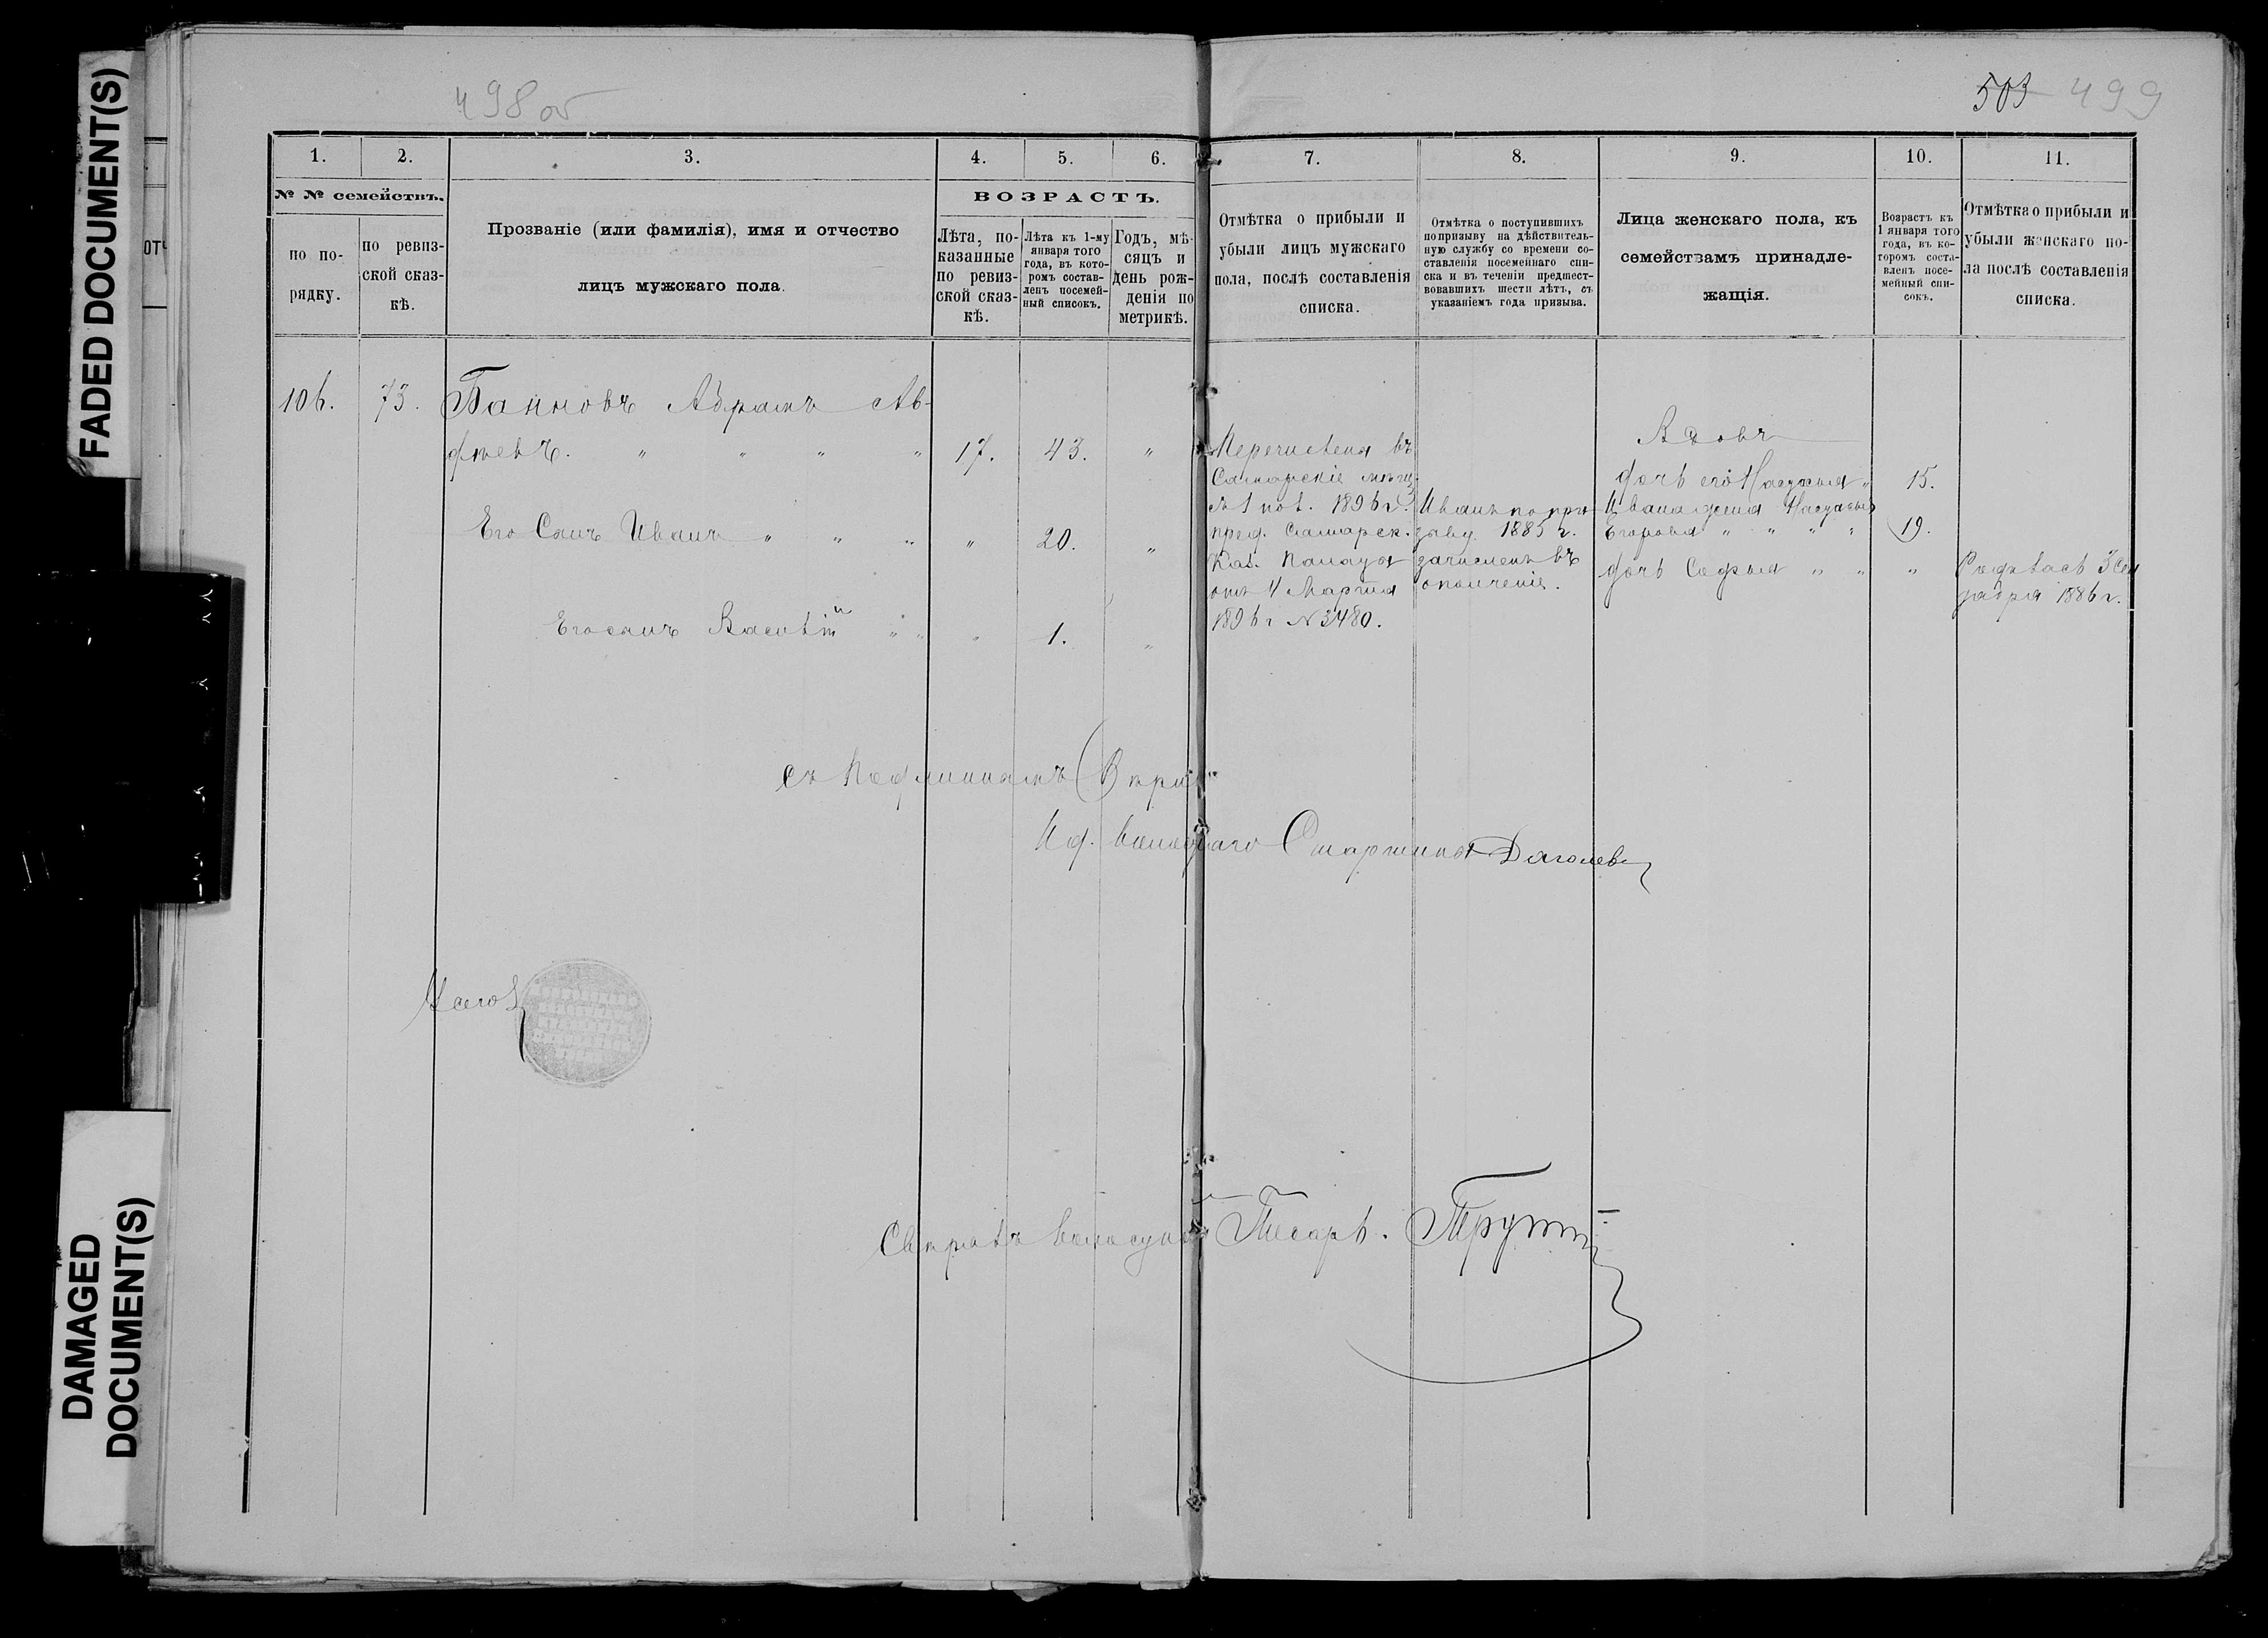 FADED DOCUMENT(S)
DAMAGED
DOCUMENT(S)
498 об
503 499
1. 2. 3. 4. 5. 6. 7. 8. 9. 10. 11.
№ № семействъ.
по по-
рядку.
по ревиз-
ской сказ-
кѣ.
Прозваніе (или фамилія), имя и отчество
лицъ мужскаго пола.
ВОЗРАСТЪ.
Лѣта, по-
казанные
по ревиз-
ской сказ-
кѣ.
Лѣта къ 1-му
января того
года, въ кото-
ромъ состав-
ленъ посемей-
ный списокъ.
Годъ, мѣ-
сяцъ и
день рож-
денія по
метрикѣ.
Отмѣтка о прибыли и
убыли лицъ мужскаго
пола, послѣ составленія
списка.
Отмѣтка о поступившихъ
по призыву на дѣйствитель-
ную службу со времени со-
ставленія посемейнаго спи-
ска и въ теченіи предшест-
вовавшихъ шести лѣтъ, съ
указаніемъ года призыва.
Лица женскаго пола, къ
семействамъ принадле-
жащія.
Возрастъ къ
1 января того
года, въ ко-
торомъ соста-
вленъ посе-
мейный спи-
сокъ.
Отмѣтка о прибыли и
убыли женскаго по-
ла послѣ составленія
списка.
106. 73. Банновъ Абрамъ Ав-
фѣевъ. " " " " 17. 43. "
Его Сынъ Иванъ " " " " 20. "
Его сынъ Василій " " " 1. "
Перечислены въ
Самарскіе мѣщ.
съ 1 пол. 1896 г.
пред. Самарск.
Каз. Палаты
отъ 4 Марта
1896 г №3480.
Иванъ по при-
зыву 1885 г.
зачисленъ въ
ополченіе.
Вдовъ
дочь его Настасья " 15.
Ивана жена Настасья
Егорова " " " " 19.
дочь Софья " " "
Родилась 3 Сен
тября 1886 г.
Съ Подлиннымъ Вѣрно:
Ид. Волостнаго Старшины
Свѣрялъ Волостной Писарь.